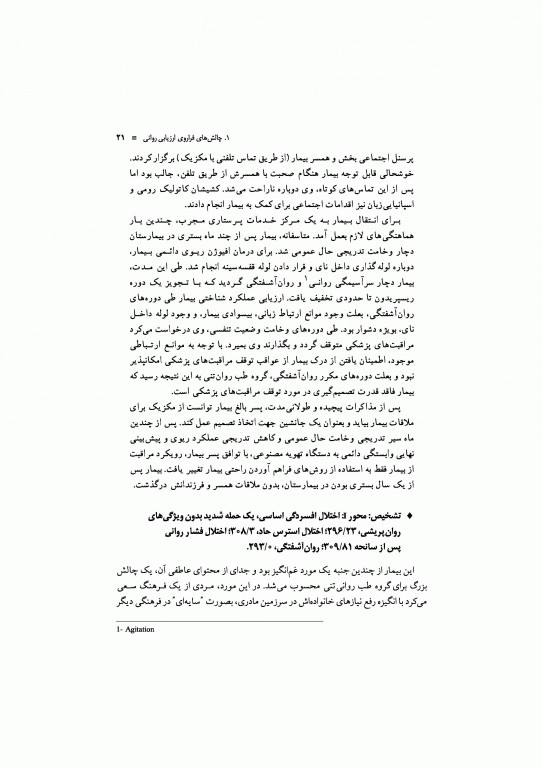 ۱. چالش‌های فراروی ارزیابی روانی = ۲۱
پرسنل اجتماعی بخش و همسر بیمار (از طریق تماس تلفنی با مکزیک) برگزار کردند.
خوشحالی قابل توجه بیمار هنگام صحبت با همسرش از طریق تلفن، جالب بود اما
پس از این تماس‌های کوتاه، وی دوباره ناراحت می‌شد. کشیشان کاتولیک رومی و
اسپانیایی‌زبان نیز اقدامات اجتماعی برای کمک به بیمار انجام دادند.
برای انتقال بیمار به یک مرکز خدمات پرستاری مجرب، چندین بار
هماهنگی‌های لازم بعمل آمد. متاسفانه، بیمار پس از چند ماه بستری در بیمارستان
دچار وخامت تدریجی حال عمومی شد. برای درمان افیوژن ریوی دائمی بیمار،
دوباره لوله‌گذاری داخل نای و قرار دادن لوله قفسه‌سینه انجام شد. طی این مدت،
بیمار دچار سرآسیمگی روانی۱ و روان‌آشفتگی گردید که با تجویز یک دوره
ریسپریدون تا حدودی تخفیف یافت. ارزیابی عملکرد شناختی بیمار طی دوره‌های
روان‌آشفتگی، بعلت وجود موانع ارتباط زبانی، بیسوادی بیمار، و وجود لوله داخل
نای، بویژه دشوار بود. طی دوره‌های وخامت وضعیت تنفسی، وی درخواست می‌کرد
مراقبت‌های پزشکی متوقف گردد و بگذارند وی بمیرد. با توجه به موانع ارتباطی
موجود، اطمینان یافتن از درک بیمار از عواقب توقف مراقبت‌های پزشکی امکانپذیر
نبود و بعلت دوره‌های مکرر روان‌آشفتگی، گروه طب روان‌تنی به این نتیجه رسید که
بیمار فاقد قدرت تصمیم‌گیری در مورد توقف مراقبت‌های پزشکی است.
پس از مذاکرات پیچیده و طولانی‌مدت، پسر بالغ بیمار توانست از مکزیک برای
ملاقات بیمار بیاید و بعنوان یک جانشین جهت اتخاذ تصمیم عمل کند. پس از چندین
ماه سیر تدریجی وخامت حال عمومی و کاهش تدریجی عملکرد ریوی و پیش‌بینی
نهایی وابستگی دائمی به دستگاه تهویه مصنوعی، با توافق پسر بیمار، رویکرد مراقبت
از بیمار فقط به استفاده از روش‌های فراهم آوردن راحتی بیمار تغییر یافت. بیمار پس
از یک سال بستری بودن در بیمارستان، بدون ملاقات همسر و فرزندانش درگذشت.
♦ تشخیص: محور I: اختلال افسردگی اساسی، یک حمله شدید بدون ویژگی‌های
روان‌پریشی، ۲۹۶/۲۳؛ اختلال استرس حاد، ۳۰۸/۳؛ اختلال فشار روانی
پس از سانحه ۳۰۹/۸۱؛ روان‌آشفتگی، ۲۹۳/۰.
این بیمار از چندین جنبه یک مورد غم‌انگیز بود و جدای از محتوای عاطفی آن، یک چالش
بزرگ برای گروه طب روانی‌تنی محسوب می‌شد. در این مورد، مردی از یک فرهنگ سعی
می‌کرد با انگیزه رفع نیازهای خانواده‌اش در سرزمین مادری، بصورت "سایه‌ای" در فرهنگی دیگر
1- Agitation